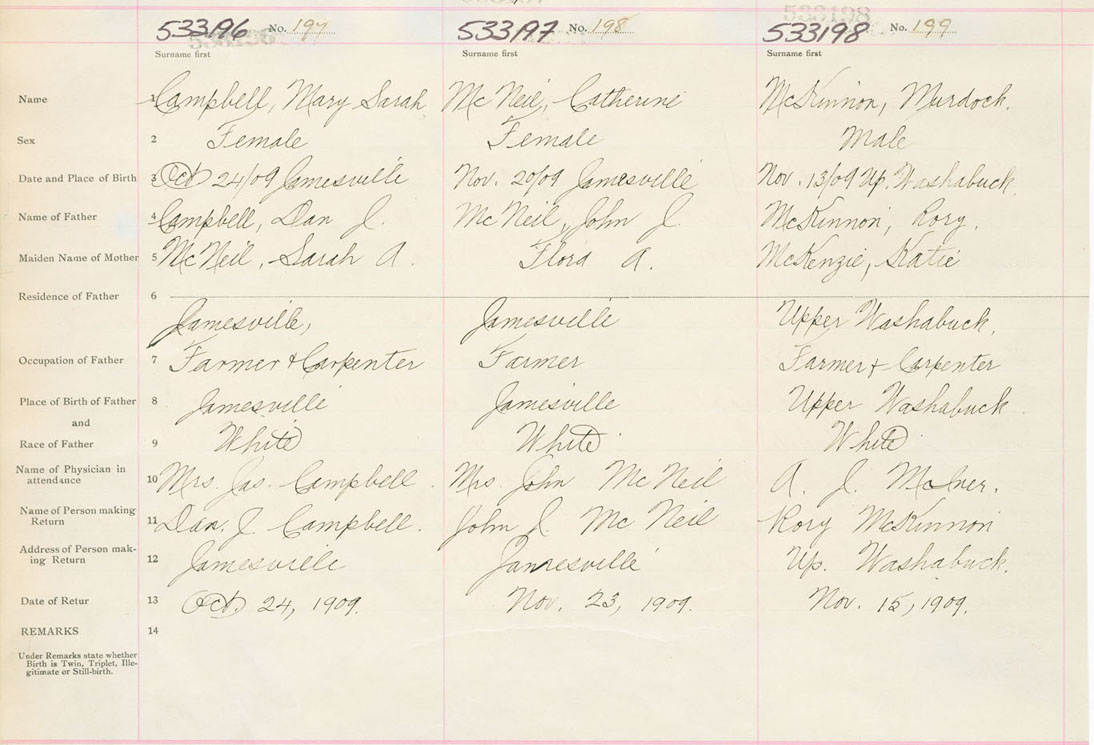 533196 No. 197 533197 No. 198 533198 No. 199
Surname first Surname first Surname first
Name 1 Campbell, Mary Sarah McNeil, Catherine McKinnon, Murdock.
Sex 2 Female Female Male
Date and Place of Birth 3 Oct 24/09 Jamesville Nov. 20/09 Jamesville Nov. 13/09 Up. Washabuck.
Name of Father 4 Campbell, Dan J. McNeil, John J. McKinnon, Rory.
Maiden Name of Mother 5 McNeil, Sarah A. Flora A. McKenzie, Katie
Residence of Father 6
Jamesville, Jamesville Upper Washabuck.
Occupation of Father 7 Farmer & Carpenter Farmer Farmer & Carpenter
Place of Birth of Father 8 Jamesville Jamesville Upper Washabuck
and
Race of Father 9 White White White
Name of Physician in
attendance 10 Mrs. Jas. Campbell. Mrs. John McNeil A. J. McIver.
Name of Person making
Return 11 Dan. J Campbell. John J. McNeil Rory McKinnon
Address of Person mak-
ing Return 12 Jamesville Jamesville Up. Washabuck.
Date of Retur 13 Oct. 24, 1909. Nov. 23, 1909. Nov. 15, 1909.
REMARKS 14
Under Remarks state whether
Birth is Twin, Triplet, Ille-
gitimate or Still-birth.